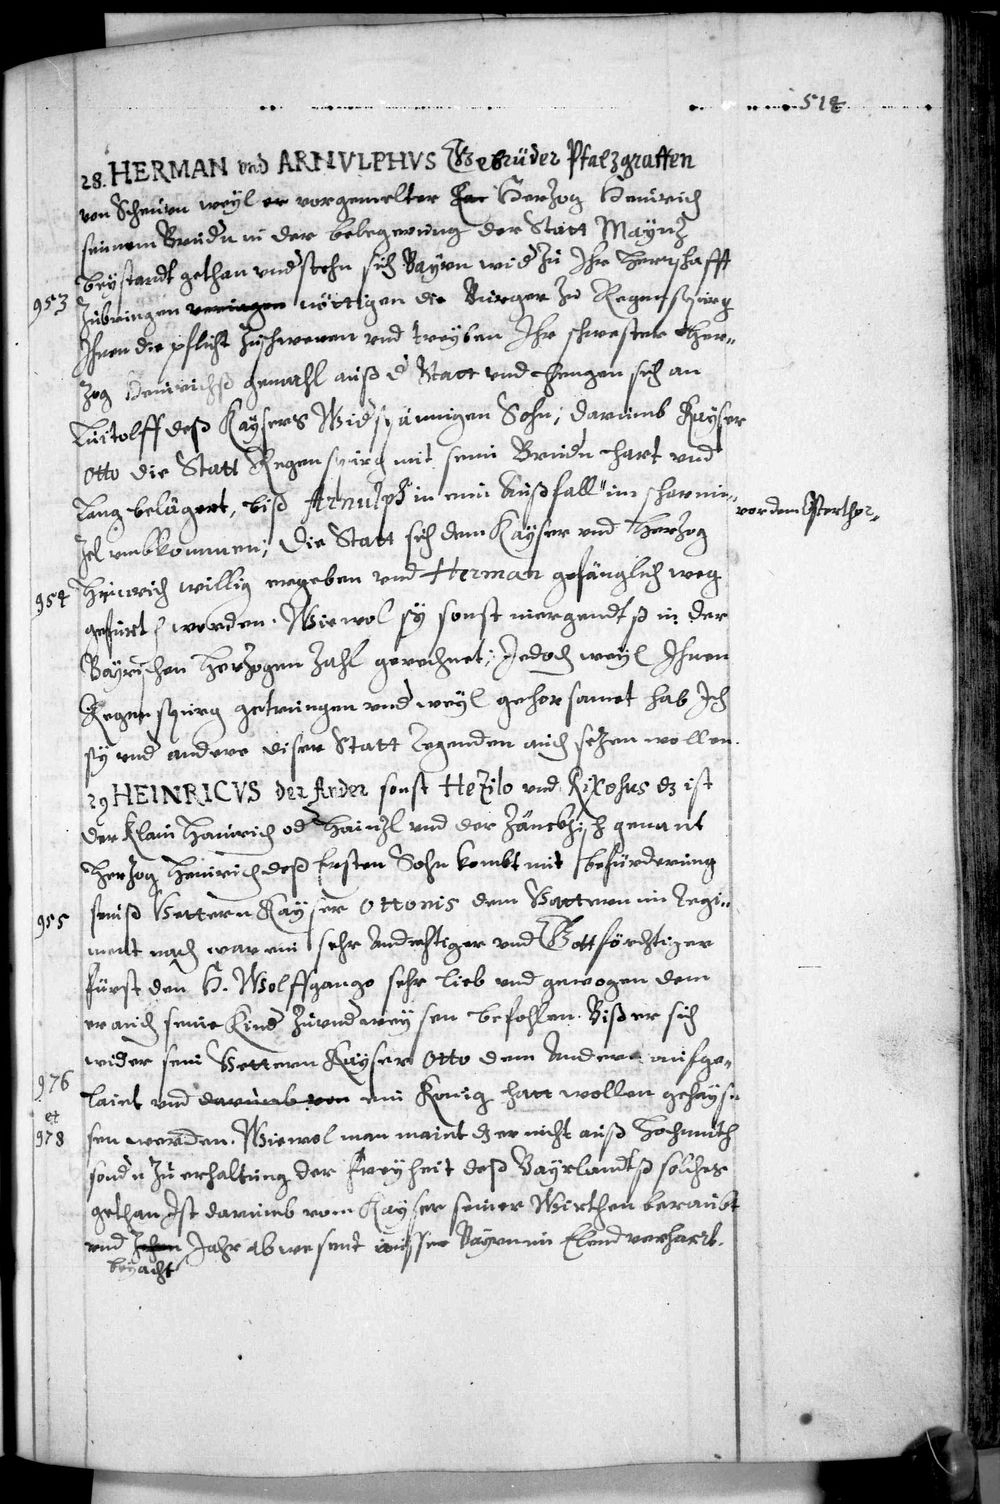 514
28. HERMAN vnd ARNVLPHVS Gebrüder Pfalzgraffen
von Scheurn weyl er vorgemelter Herzog Heinrich
seinem Bruder in der belegerung der Statt Maynz
beystandt gethan vnd sich Bayrn wid zu Ihr Herrschafft
953
zubringen nöttigen die Burger zu Regenspurg
Ihnen die pflicht zuschweren vnd treyben Ihr schwester Her-
zog Heinrichß gemahl auß d Statt vnd hengen sich an
Luitolff deß Kaysers Widspännigen Sohn; darumb Kayser
Otto die Statt Regenspurg mit seim Brudern hart vnd
lang belägert, biß Arnulph in eim Außfall im scharmi-
vor dem Osterthor
zel vmbkommen; die Statt sich dem Kayser vnd Herzog
954
Heinrich willig ergeben vnd Herman gefänglich weg
gefürt worden. Wiewol sy sonst niergendtß in der
Bayrischen Herzogen Zahl gerechnet; Jedoch weyl Ihnen
Regenspurg getrungen vnd weyl gehorsamet hab Ich
sy vnd andere diser Statt Regenden auch sezen wollen.
29 HEINRICVS der Ander sonst Hezilo vnd Rixosus dz ist
der klain Hainrich od Hainzl vnd der Zänckhisch genant
Herzog Heinrich deß Ersten Sohn kombt mit befürderung
955
seinß Vettern Kayser Ottonis dem Vattern im Regi-
ment nach war ein sehr Andechtiger vnd Gottförchtiger
fürst dem H. Wolffgango sehr lieb vnd gewogen dem
er auch seine Kind zu vnderweysen befohlen. Biß er sich
wider sein Vettern Kayser Otto dem Andern aufge-
976
et
978
laint vnd darumb von ein König hatt wollen gehayß-
sen werden. Wiewol man maint dz er nicht auß Hochmuth
sondn zu erhaltung der Freyheit deß Bayrlandtß solches
gethan Ist darumb vom Kayser seiner Wirthen beraubt
vnd Zehen Jahr abwesent ausser Bayrn im Elend verharrt.
bey acht